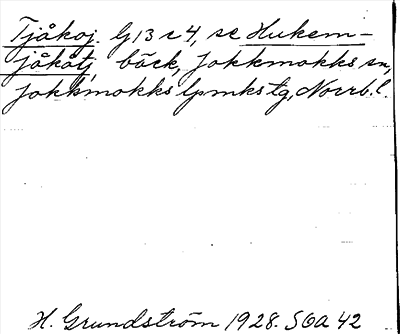 Tjåkoj. G13 r4, se Hukem-
jåkåtj, bäck, Jokkmokks sn,
Jokkmokks lpmkstg, Norrb. l.
H. Grundström 1928. SOA 42